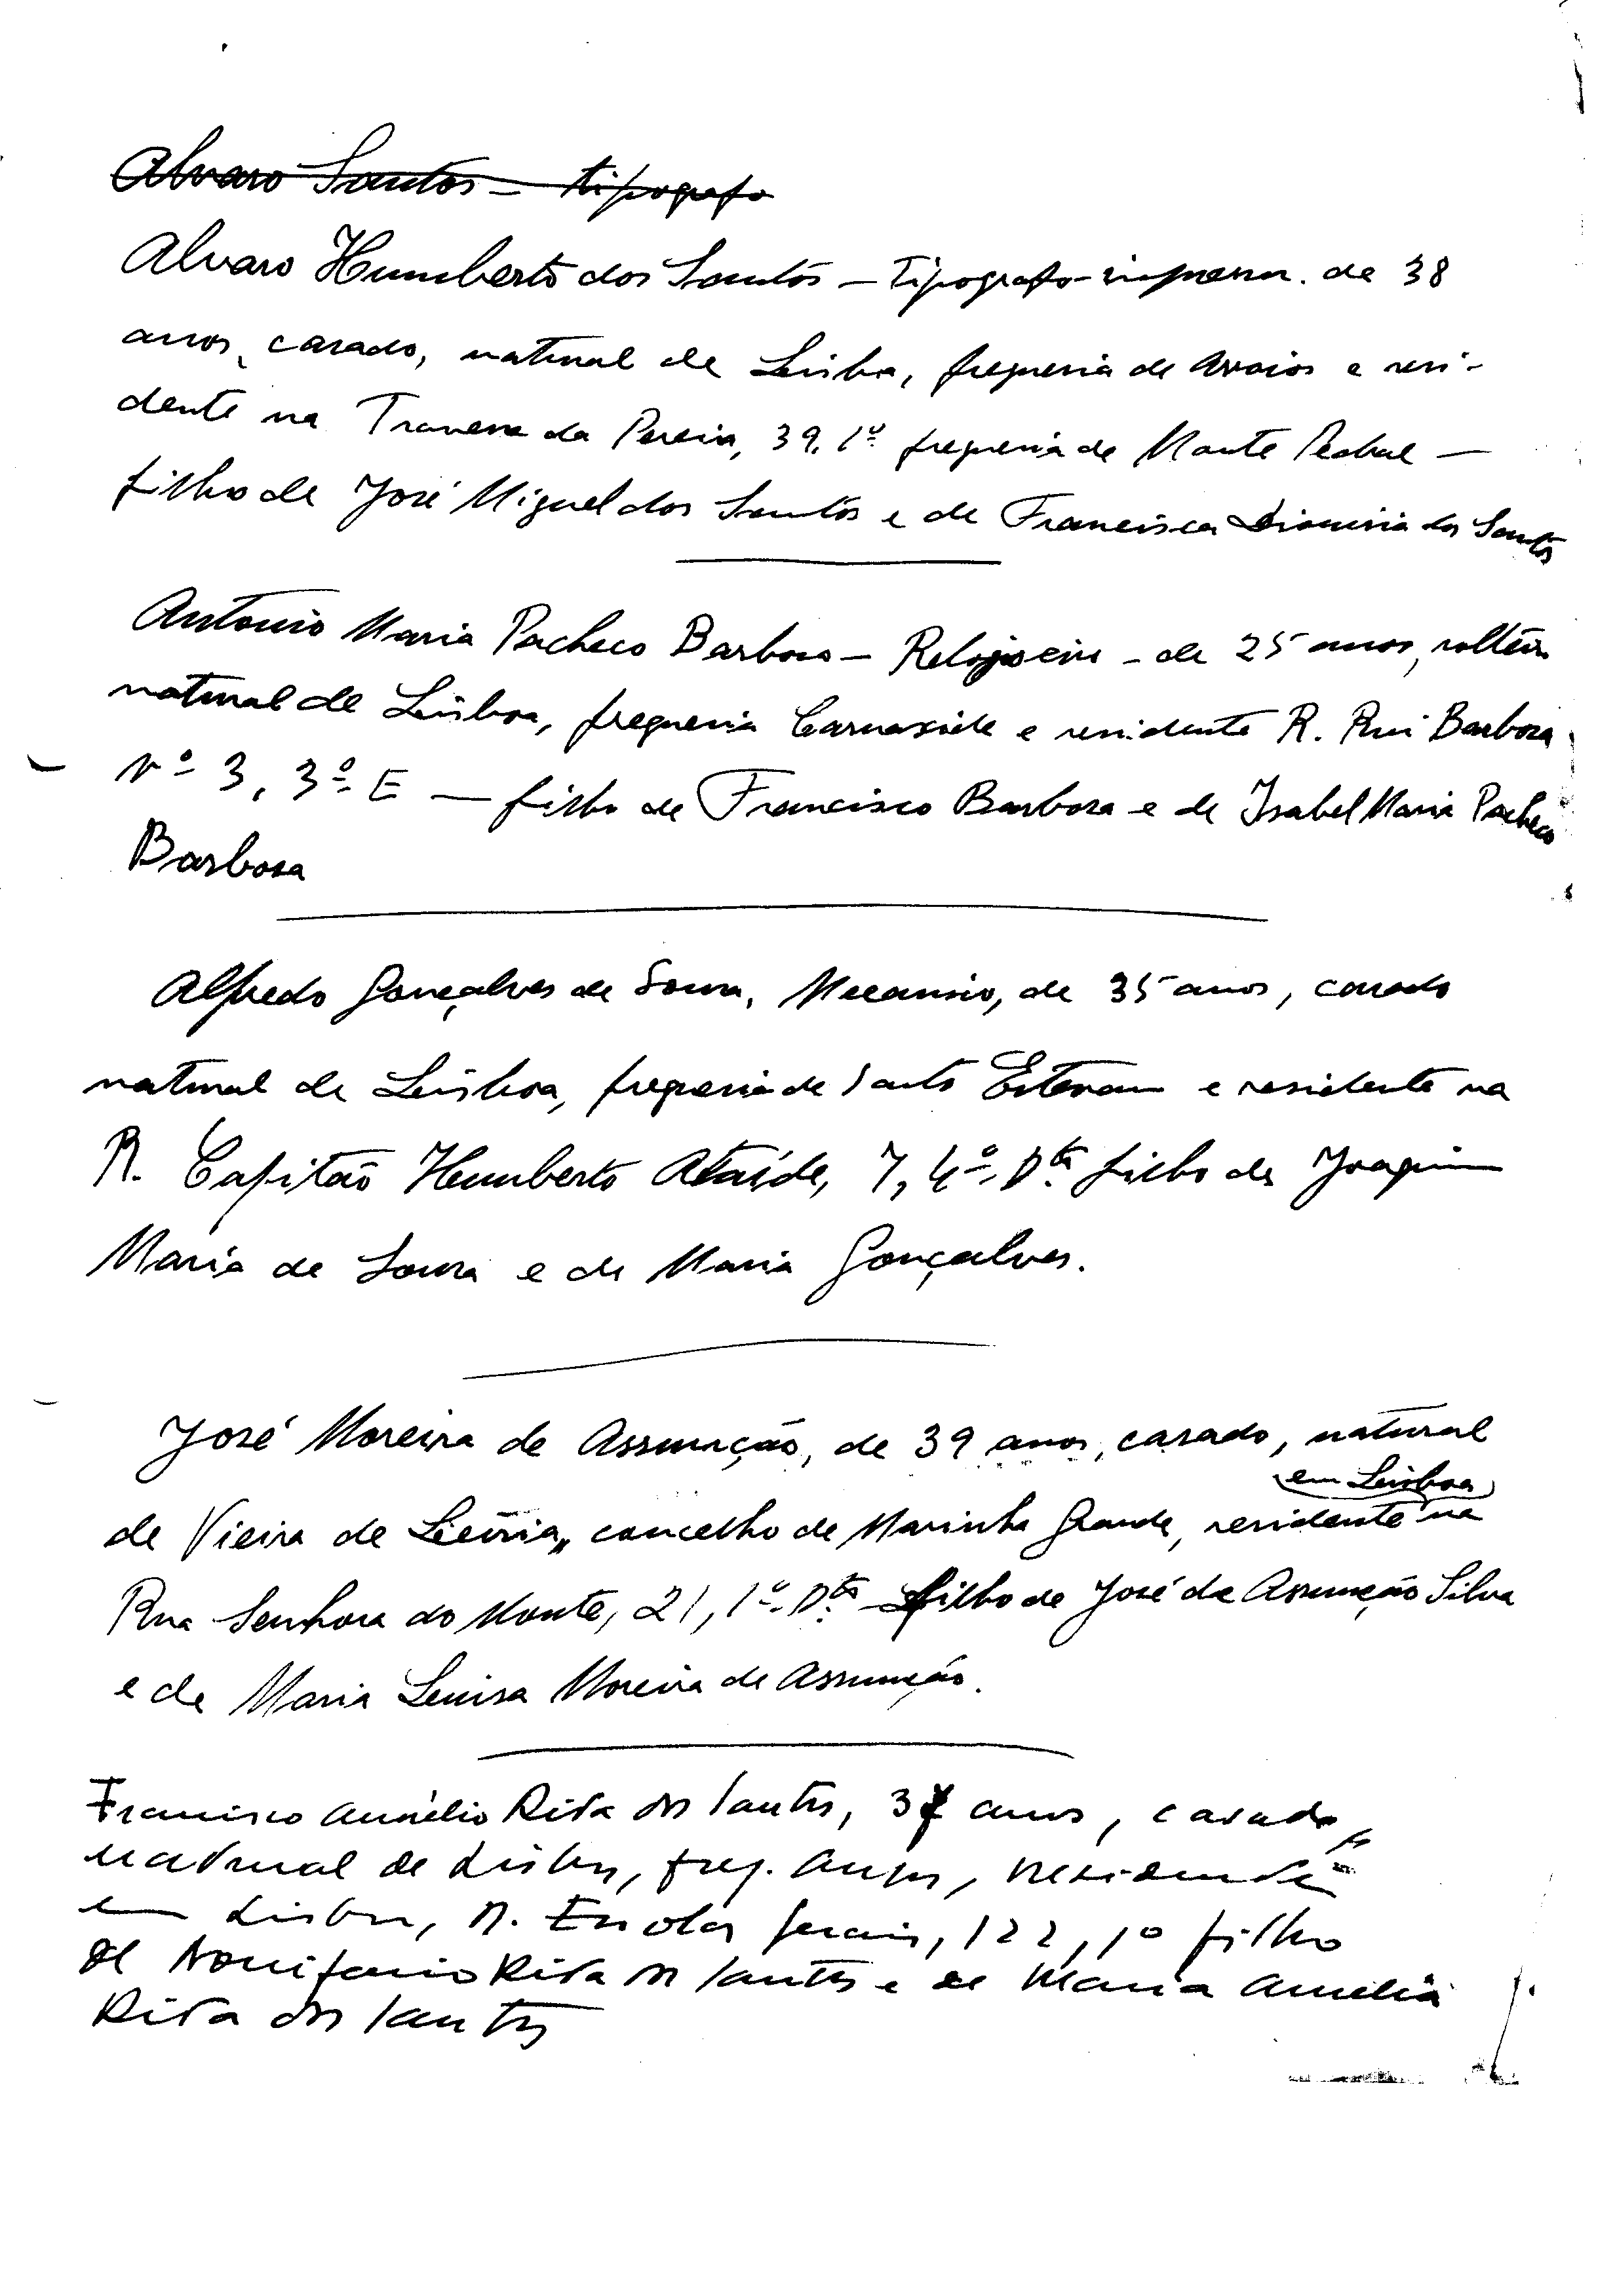 Alvaro Santos - tipografo
Alvaro Humberto dos Santos - Tipografo-impressor. de 38
anos, casado, natural de Lisboa, freguesia de Arroios e resi-
dente na Travessa da Pereira, 39, 1º freguesia de Monte Pedral -
filho de José Miguel dos Santos e de Francisca Dionisia dos Santos
Antonio Maria Pacheco Barbosa - Relojoeiro - de 25 anos, solteiro
natural de Lisboa, freguesia Carnaxide e residente R. Rui Barbosa
Nº 3, 3º E - filho de Francisco Barbosa e de Isabel Maria Pacheco
Barbosa
Alfredo Gonçalves de Sousa, Mecanico, de 35 anos, casado
natural de Lisboa, freguesia de Santo Estevam e residente na
R. Capitão Humberto Ataíde, 7, 4º Dtº filho de Joaquim
Maria de Sousa e de Maria Gonçalves.
José Moreira de Assunção, de 39 anos, casado, natural
em Lisboa
de Vieira de Leiria, concelho de Marinha Grande, residente na
Rua Senhora do Monte, 21, 1º Dtº filho de José da Assunção Silva
e de Maria Luisa Moreira de Assunção.
Francisco Aurélio Rita dos Santos, 37 anos, casado,
natural de Lisboa, freg. Anjos, residente
em Lisboa, R. Escolas Gerais, 122, 1º filho
de Bonifacio Rita dos Santos e de Maria Amelia
Rita dos Santos